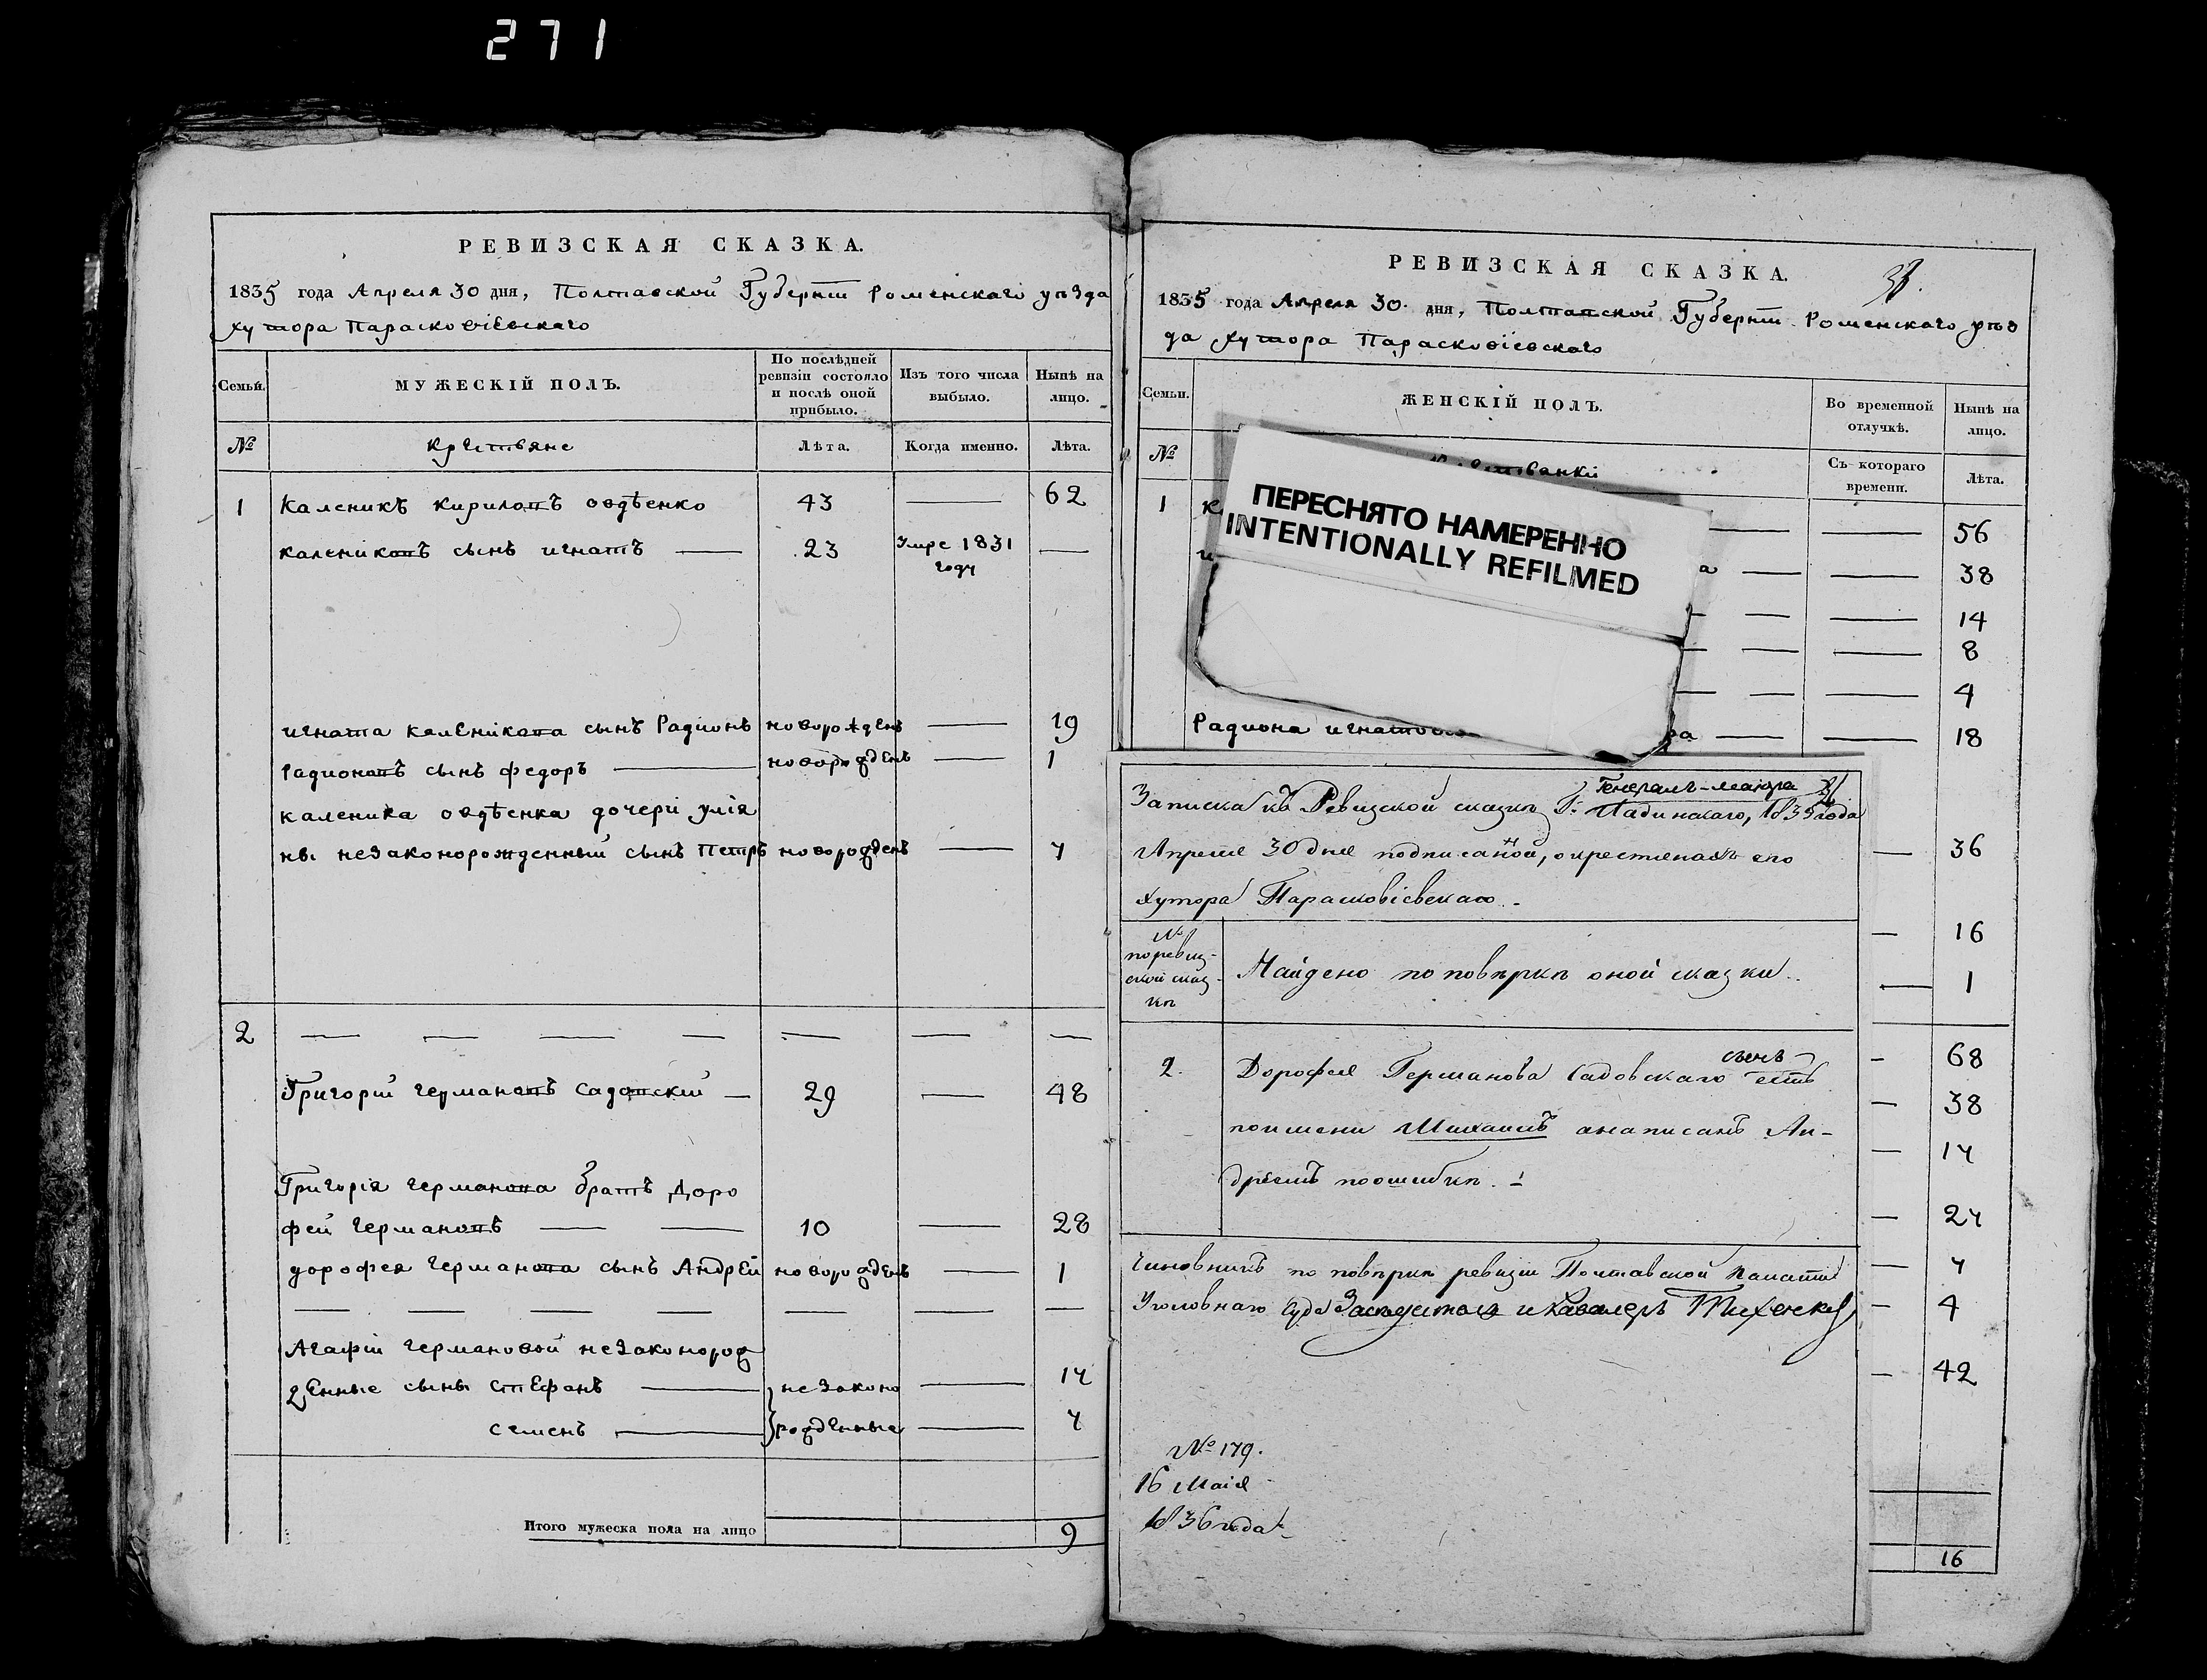 271
РЕВИЗСКАЯ СКАЗКА.
1835 года Апреля 30 дня, Полтавской Губернїи Роменскаго уѣзда
хутора Парасковіевскаго
Семьи.
МУЖЕСКІЙ ПОЛЪ.
По послѣдней ревизіи состояло и послѣ оной прибыло.
Изъ того числа выбыло.
Нынѣ на лицо.
№
Крестьяне
Лѣта.
Когда именно.
Лѣта.
1 Каленикъ Кириловъ Овдѣенко 43 — 62
Калениковъ сынъ Игнатъ — 23 Умре 1831 году —
Игната Каленикова сынъ Радионъ новорожденъ — 19
Радионовъ сынъ Федоръ — новорожденъ — 1
Каленика Овдѣенка дочери Улія
ны незаконорожденный сынъ Петръ новорожденъ — 7
2 — — — — — — —
Григорій Германовъ Садовскій — 29 — 48
Григорія Германова братъ Доро
фей Германовъ — — 10 — 28
Дорофея Германова сынъ Андрей новорожденъ — 1
— — — — — — —
Агафіи Германовой незаконорож
денные сыны Стефанъ — незаконо — 17
Семенъ — рожденные — 7
Итого мужеска пола на лицо 9
РЕВИЗСКАЯ СКАЗКА.
1835 года Апреля 30 дня, Полтавской Губернїи Роменскаго уѣз
да хутора Парасковіевскаго
Семьи.
ЖЕНСКІЙ ПОЛЪ.
Во временной отлучкѣ.
Нынѣ на лицо.
№
Съ котораго времени.
Лѣта.
ПЕРЕСНЯТО НАМЕРЕННО
INTENTIONALLY REFILMED
1 — — 56
— — 38
— — 14
— — 8
— — 4
Радиона — — 18
— 36
— 16
— 1
— 68
— 38
— 17
— 27
— 7
— 4
— 42
16
Генералъ-маіора
Записка къ Ревизской сказкѣ Г. Ладинскаго, 1835 года
Апреля 30 дня подписаной, о крестьянахъ его
хутора Парасковіевскаго.
№ по ревиз-
ской сказ-
кѣ
Найдено по повѣркѣ оной сказки.
сынъ
2. Дорофея Германова Садовскаго есть
по имени Михаилъ а написанъ Ан-
дреемъ по ошибкѣ.
Чиновникъ по повѣркѣ ревизіи Полтавской Палаты
Уголовнаго Суда Заседатель и Кавалеръ
№ 179.
16 Маія
1836 года